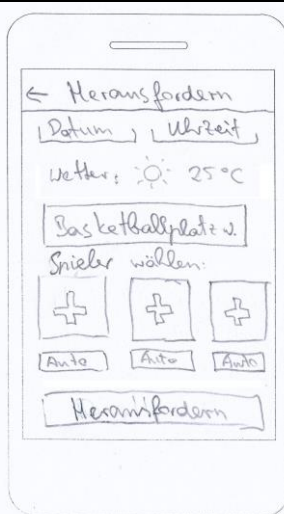 ← Herausfordern
Datum Uhrzeit
Wetter: 25 °C
Basketballplatz w.
Spieler wählen:
Auto Auto Auto
Herausfordern